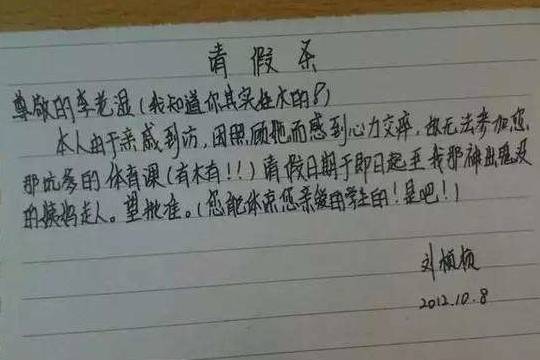 请假条
尊敬的李老湿(我知道你其实姓水的?)
本人由于亲戚到访,因照顾她而感到心力交瘁,故无法参加您
那坑爹的体育课(有木有!!)请假日期于即日起至我那神出鬼没
的姨妈走人。望批准。(您能体谅您亲爱的学生的!是吧!)
刘
2012.10.8